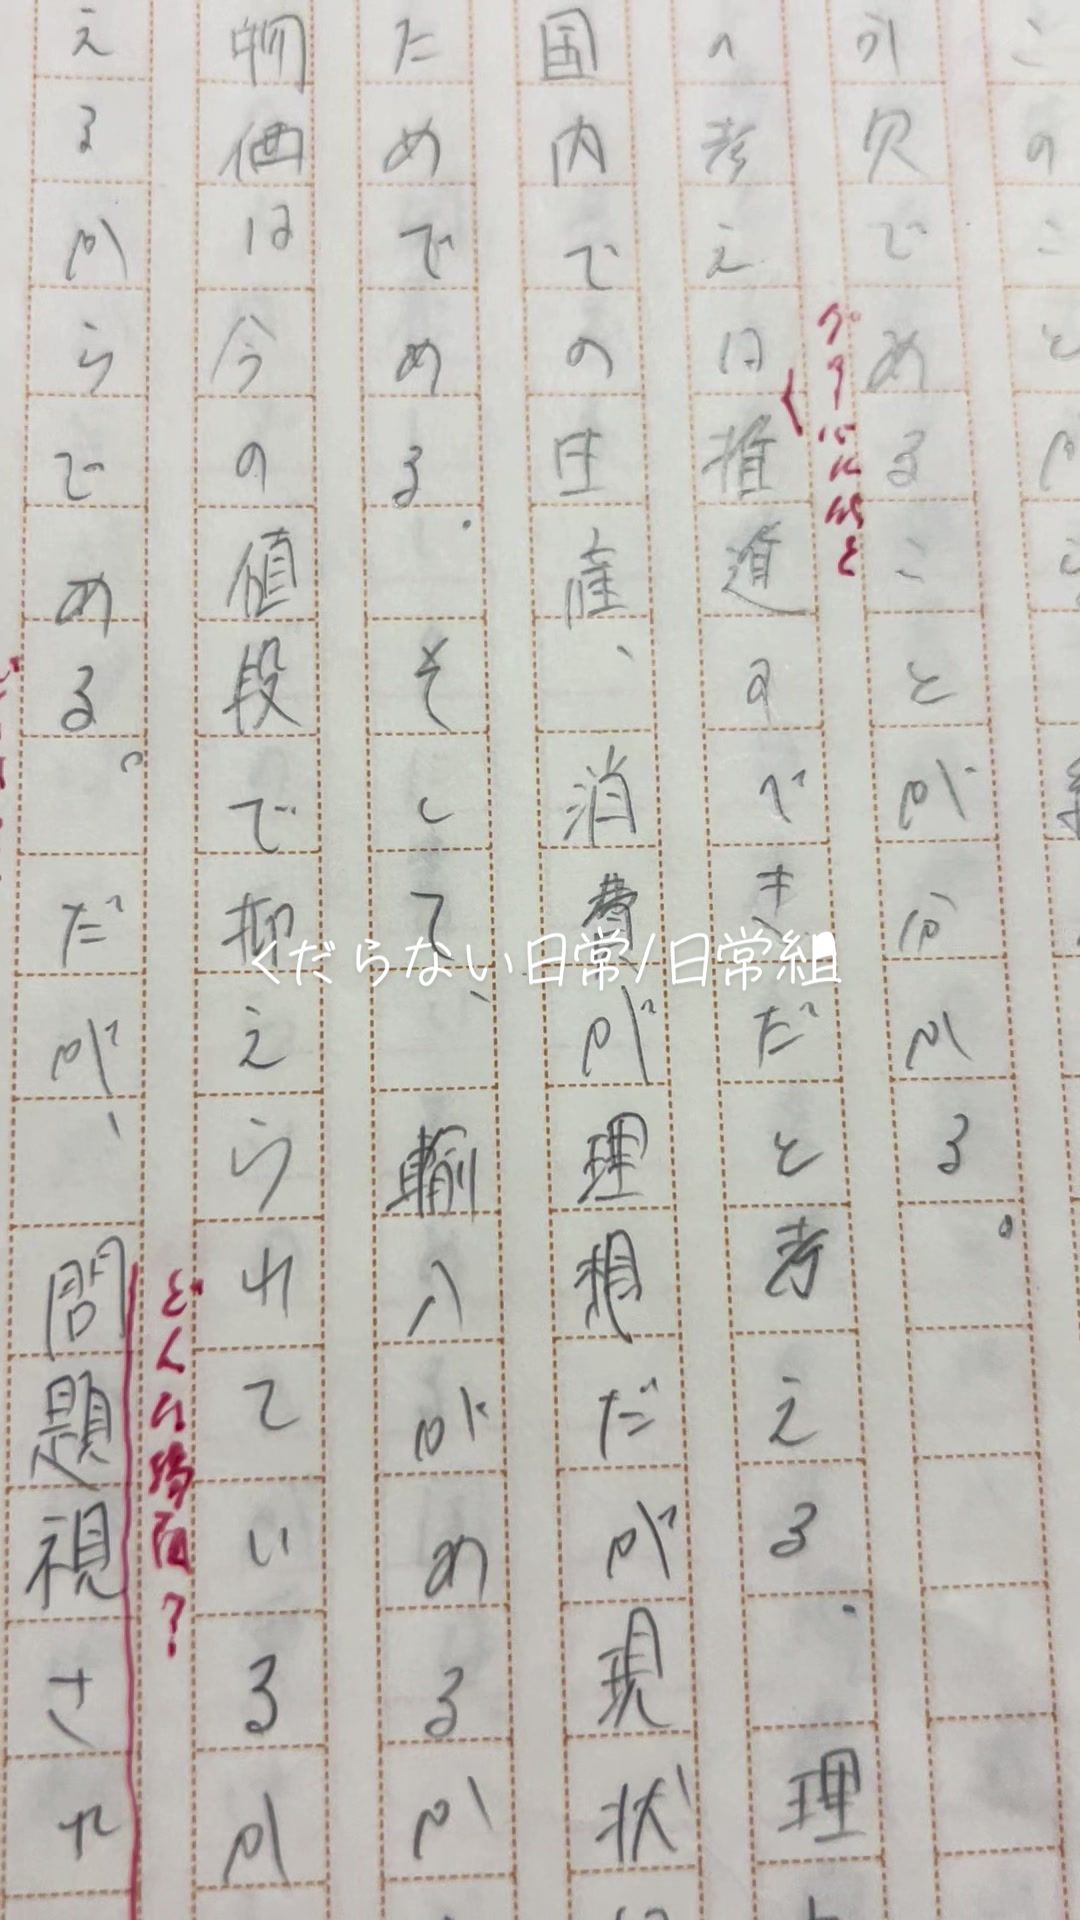 このこと
可欠であることが分かる。
の考えは推進のべきだと考える。理
国内での生産、消費が理想だが現状
ためである。そして、輸入があるか
物価は今の値段で抑えられているか
えるからである。だが、問題視され
グローバル化と
どんな場面?
くだらない日常/日常組